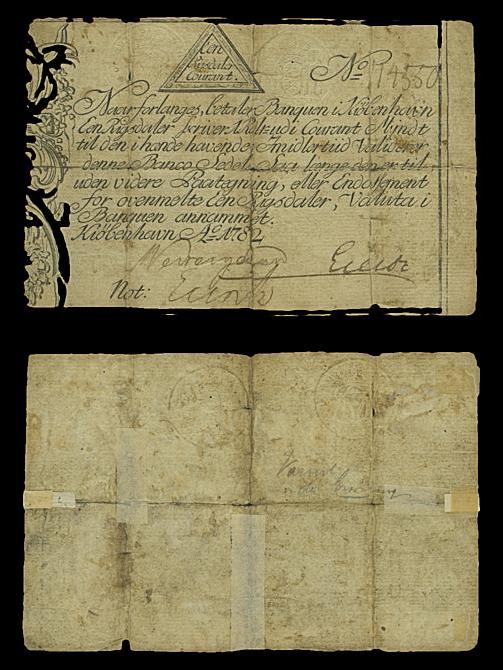 Een
Rigsdaler
Courant.
No 14550
Naar forlanges, betaler Banquen i Kiøbenhavn
Een Rigsdaler skriver 1 Rdlr. udi Courant Myndt
til den i hænde havende; Imidlertiid Validerer
denne Banco-Sedel, saa længe den er til
uden videre Paategning, eller Endossement
for ovenmelte Een Rigsdaler, Valuta i
Banquen annammet.
Kiøbenhavn Ao. 1782
Not: